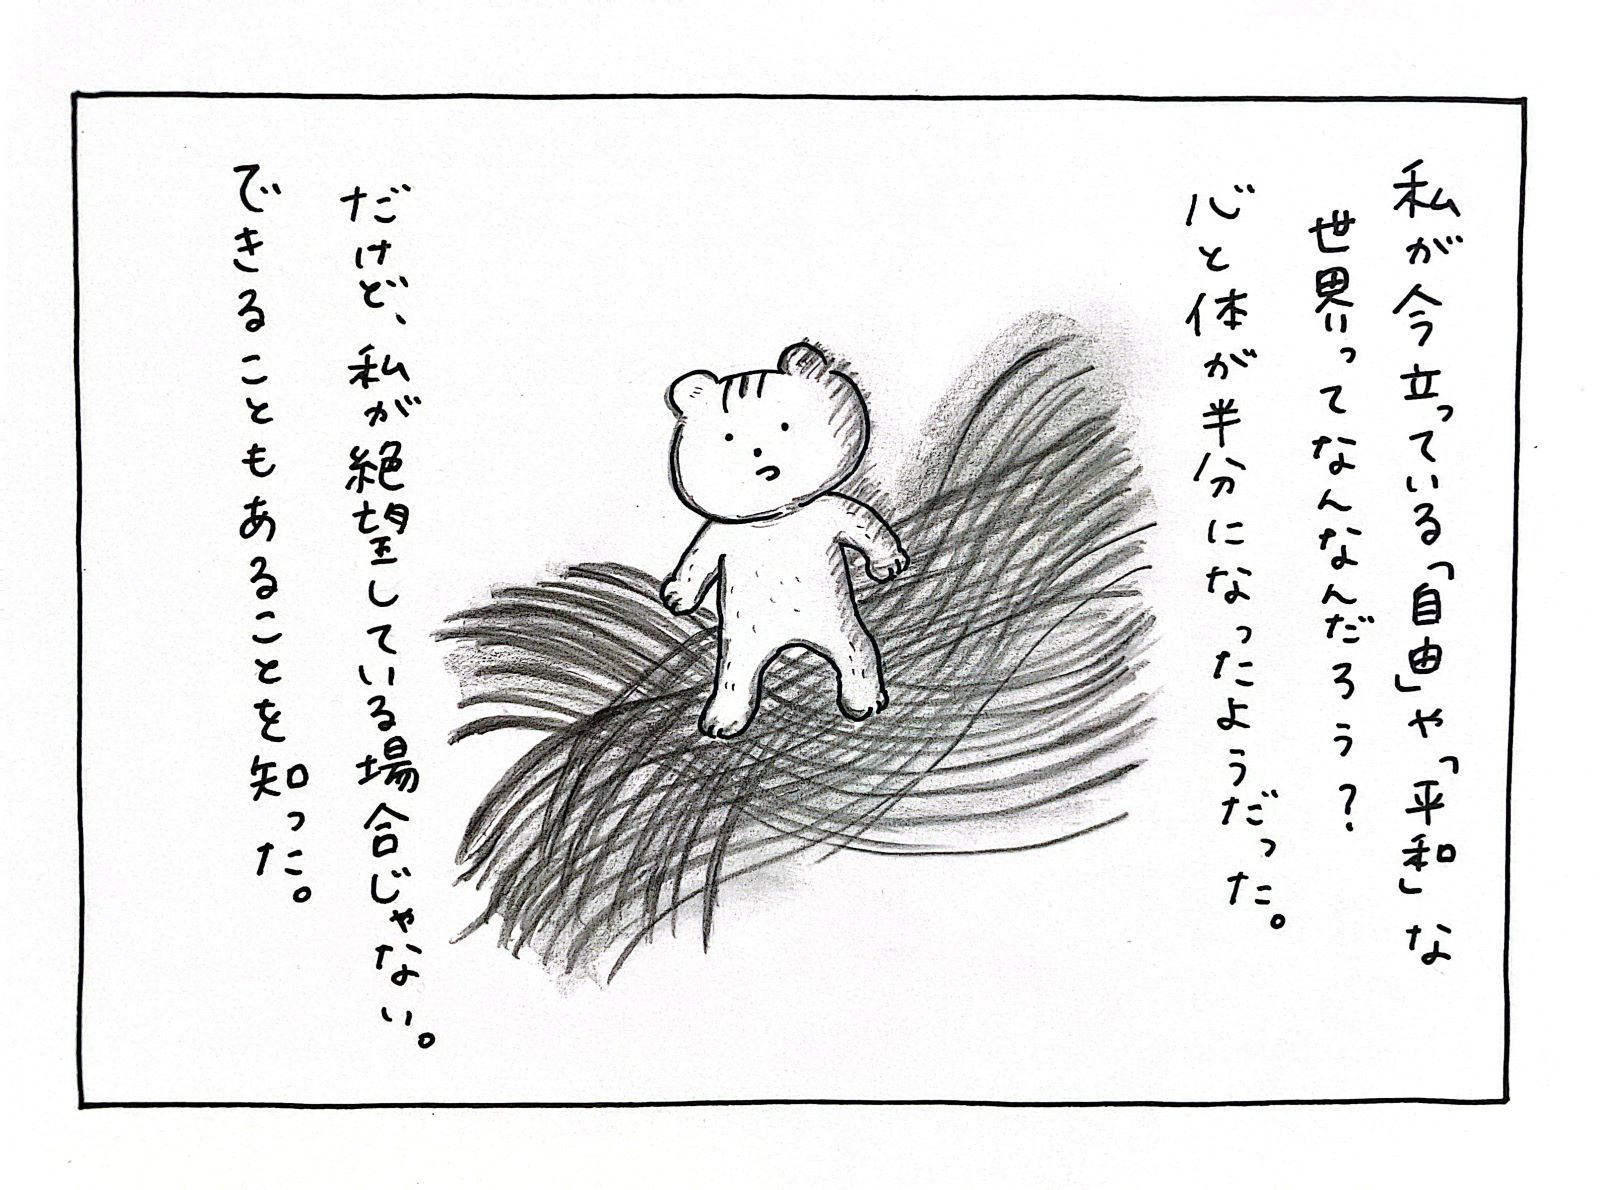 私が今立っている「自由」や「平和」な
世界ってなんなんだろう？
心と体が半分になったようだった。
だけど、私が絶望している場合じゃない。
できることもあることを知った。